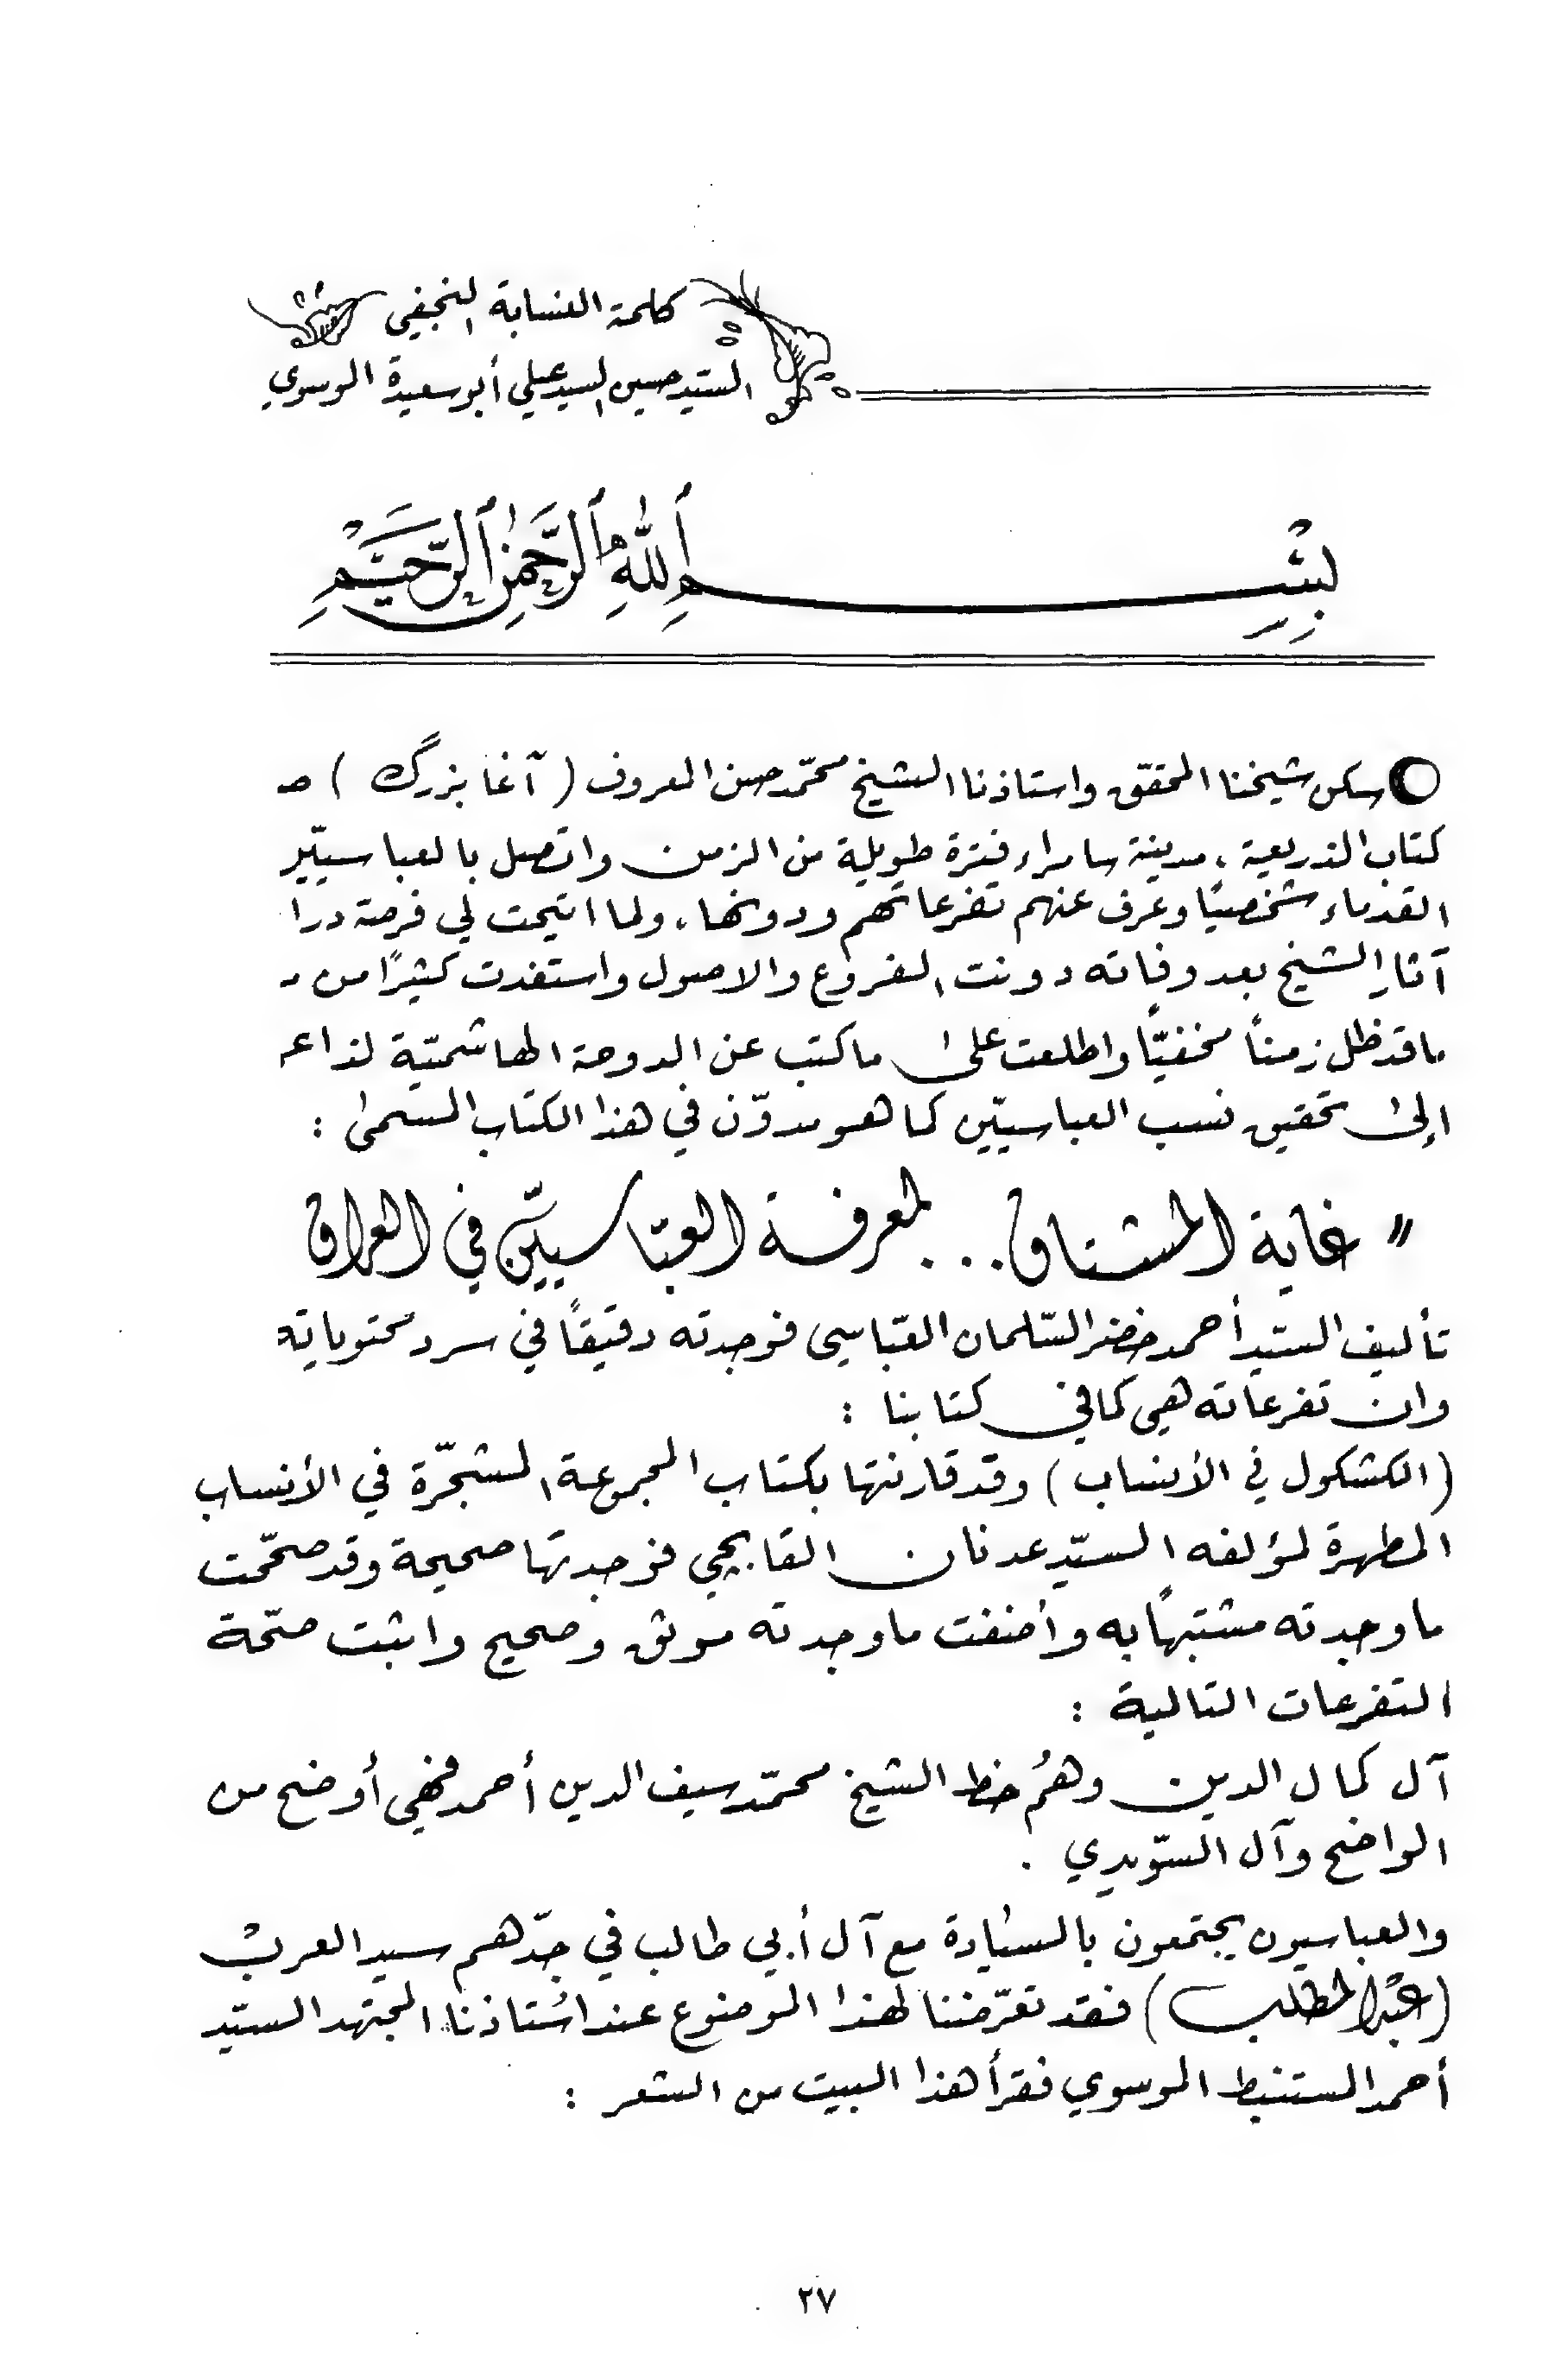 كلمة النسابة النجفي
السيد حسين السيد علي أبو سعيدة الموسوي
بِسْمِ ٱللَّهِ ٱلرَّحْمَٰنِ ٱلرَّحِيمِ
سكن شيخنا المحقق واستاذنا الشيخ محمّد حسن المعروف ( آغا بزرگ ) صـ
كتاب الذريعة، مدينة سامراء فترة طويلة من الزمن واتصل بالعباسيّيـ
القدماء شخصيًا وعرف عنهم تفرعاتهم ودونها، ولما اتيحت لي فرصة درا
آثار الشيخ بعد وفاته دونت الفروع والاصول واستفدت كثيرًا من د
ما قد ظل زمنًا مخفيًّا واطلعت على ما كتب عن الدوحة الهاشميّة لذا عـ
إلى تحقيق نسب العباسيّين كما هو مدوّن في هذا الكتاب المسمى :
" غاية المشتاق... لمعرفة العبّاسيّين في العراق
تأليف السيّد أحمد خضر السّلمان العبّاسي فوجدته دقيقًا في سرد محتوياته
وان تفرعاته هي كما في كتابنا :
(الكشكول في الأنساب) وقد قارنتها بكتاب المجموعة المشجّرة في الأنساب
المطهرة لمؤلفه السيّد عدنان القابچي فوجدتها صحيحة وقد صحّحت
ما وجدته مشتبهًا به وأضفت ما وجدته موثق وصحيح واثبت صحّة
التفرعات التالية :
آل كمال الدين وهُم خط الشيخ محمّد سيف الدين أحمد فهي أوضح من
الواضح وآل السّويدي .
والعباسيون يجتمعون بالسيادة مع آل أبي طالب في جدّهم سيد العرب
(عبد المطلب) فقد تعرّضنا لهذا الموضوع عند استاذنا المجتهد السيّد
أحمد المستنبط الموسوي فقرأ هذا البيت من الشعر :
٢٧